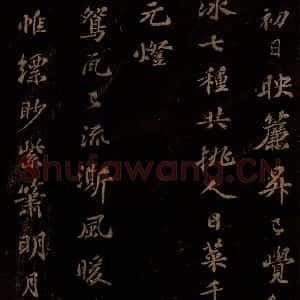 初日映簾升〻覺
冰七種共挑人日菜千
元燈
鴛瓦上流澌風暖
帷縹眇紫簫明月
shufawang.CN